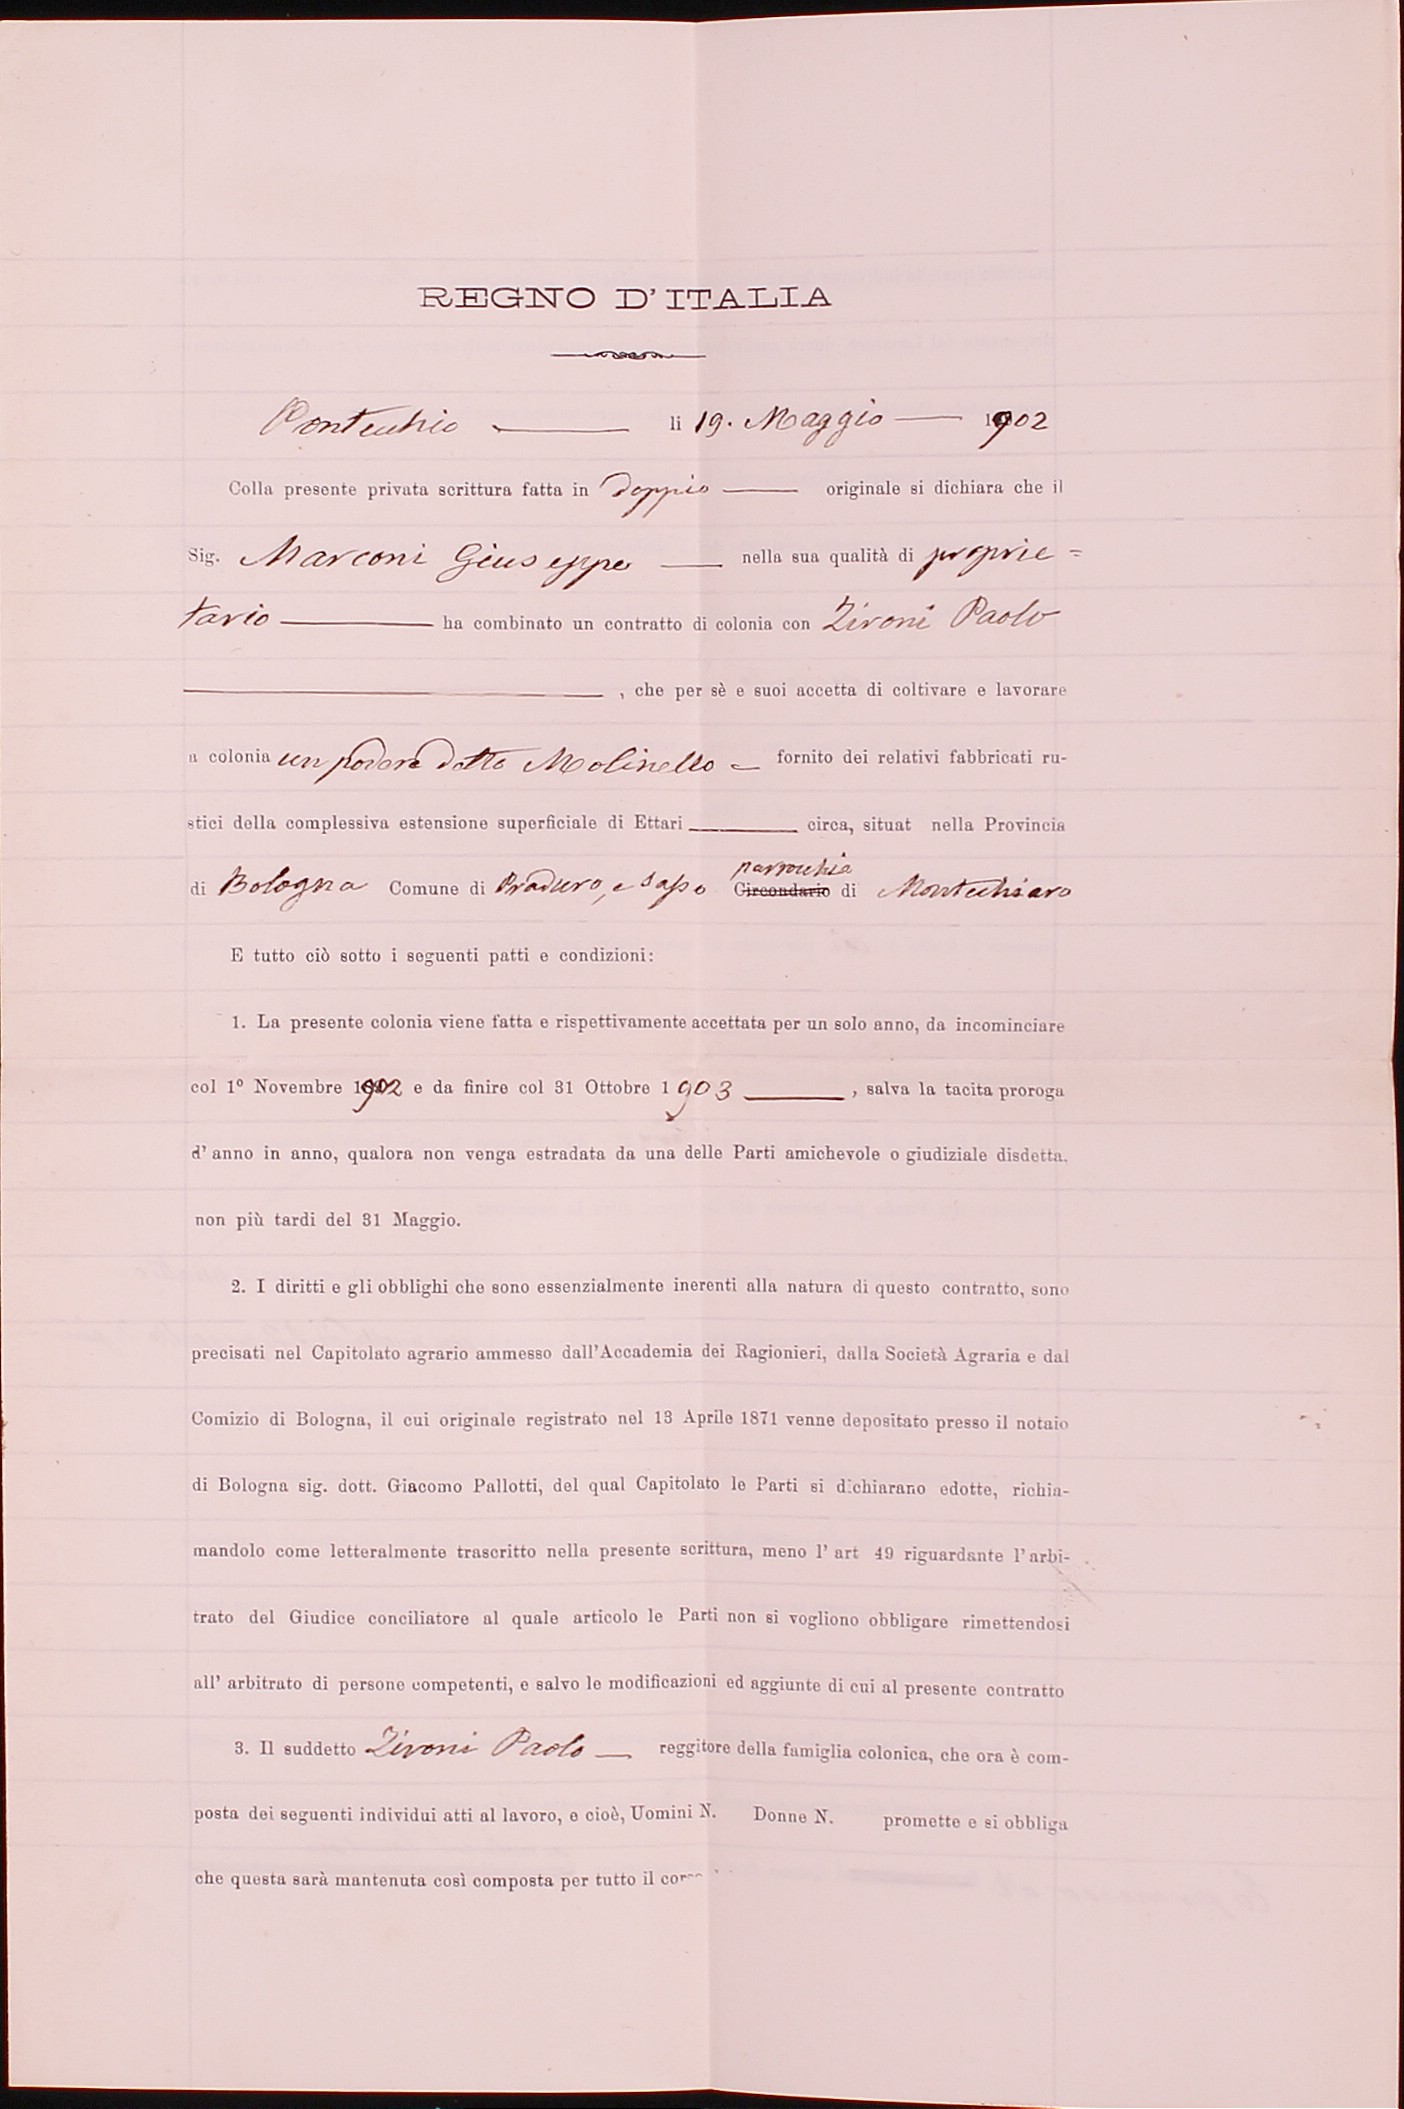 REGNO D'ITALIA
Pontecchio li 19. Maggio 1902
Colla presente privata scrittura fatta in doppio originale si dichiara che il
Sig. Marconi Giuseppe nella sua qualità di proprie=
tario ha combinato un contratto di colonia con Zironi Paolo
, che per sè e suoi accetta di coltivare e lavorare
a colonia un podere detto Molinello fornito dei relativi fabbricati ru-
stici della complessiva estensione superficiale di Ettari circa, situat nella Provincia
parrochia
di Bologna Comune di Praduro, e Sasso Circondario di Montechiaro
E tutto ciò sotto i seguenti patti e condizioni:
1. La presente colonia viene fatta e rispettivamente accettata per un solo anno, da incominciare
col 1º Novembre 1902 e da finire col 31 Ottobre 1903, salva la tacita proroga
d'anno in anno, qualora non venga estradata da una delle Parti amichevole o giudiziale disdetta,
non più tardi del 31 Maggio.
2. I diritti e gli obblighi che sono essenzialmente inerenti alla natura di questo contratto, sono
precisati nel Capitolato agrario ammesso dall'Accademia dei Ragionieri, dalla Società Agraria e dal
Comizio di Bologna, il cui originale registrato nel 13 Aprile 1871 venne depositato presso il notaio
di Bologna sig. dott. Giacomo Pallotti, del qual Capitolato le Parti si dichiarano edotte, richia-
mandolo come letteralmente trascritto nella presente scrittura, meno l'art 49 riguardante l'arbi-
trato del Giudice conciliatore al quale articolo le Parti non si vogliono obbligare rimettendosi
all'arbitrato di persone competenti, e salvo le modificazioni ed aggiunte di cui al presente contratto
3. Il suddetto Zironi Paolo reggitore della famiglia colonica, che ora è com-
posta dei seguenti individui atti al lavoro, e cioè, Uomini N. Donne N. promette e si obbliga
che questa sarà mantenuta così composta per tutto il